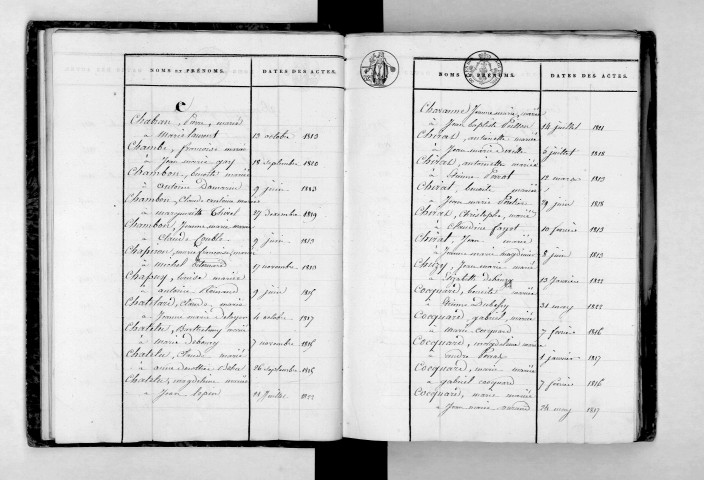 NOMS ET PRÉNOMS. DATES DES ACTES.
C
Chaban, marié
à Marie 13 octobre 1813
Chambe, françoise mariée
à Jean marie gay 18 septembre 1810
Chambon, benoite mariée
à antoine 9 juin 1813
Chambon, Claude mariée
à marguerite Thivel 27 decembre 1819
Chambon, Jeanne marie mariée
à Claude 9 juin 1813
mariée
à michel 17 novembre 1813
Chapuy, louise mariée
à antoine 9 juin 1815
Chatelard, claude marié
à Jeanne marie 4 octobre 1817
Chatelu, Barthelemy marié
à marie 7 novembre 1815
Chatelu, Claude marié
à 26 septembre 1815
Chatelu, magdeleine mariée
à Jean 1822
NOMS ET PRÉNOMS. DATES DES ACTES.
Chavanne Jeanne marie, mariée
à Jean baptiste 14 juillet 1821
Chirat, antoinette mariée
à Jean marie 5 juillet 1818
Chirat, antoinette mariée
à Etienne 12 mars 1813
Chirat, benoite mariée
à Jean marie 29 juin 1818
Chirat, Christophe, marié
à Claudine fayot 10 fevrier 1813
Chirat, Jean marié
à Jeanne marie 8 juin 1813
Jean marie marié
à Elizabeth 13 Janvier 1822
Cocquard, benoite mariée
à Etienne 31 may 1822
Cocquard, gabriel marié
à marie cocquard 7 fevrier 1816
Cocquard, magdeleine mariée
à andré 1 janvier 1817
Cocquard, marie mariée
à gabriel cocquard 7 fevrier 1816
Cocquard, marie mariée
à Jean marie 24 may 1817